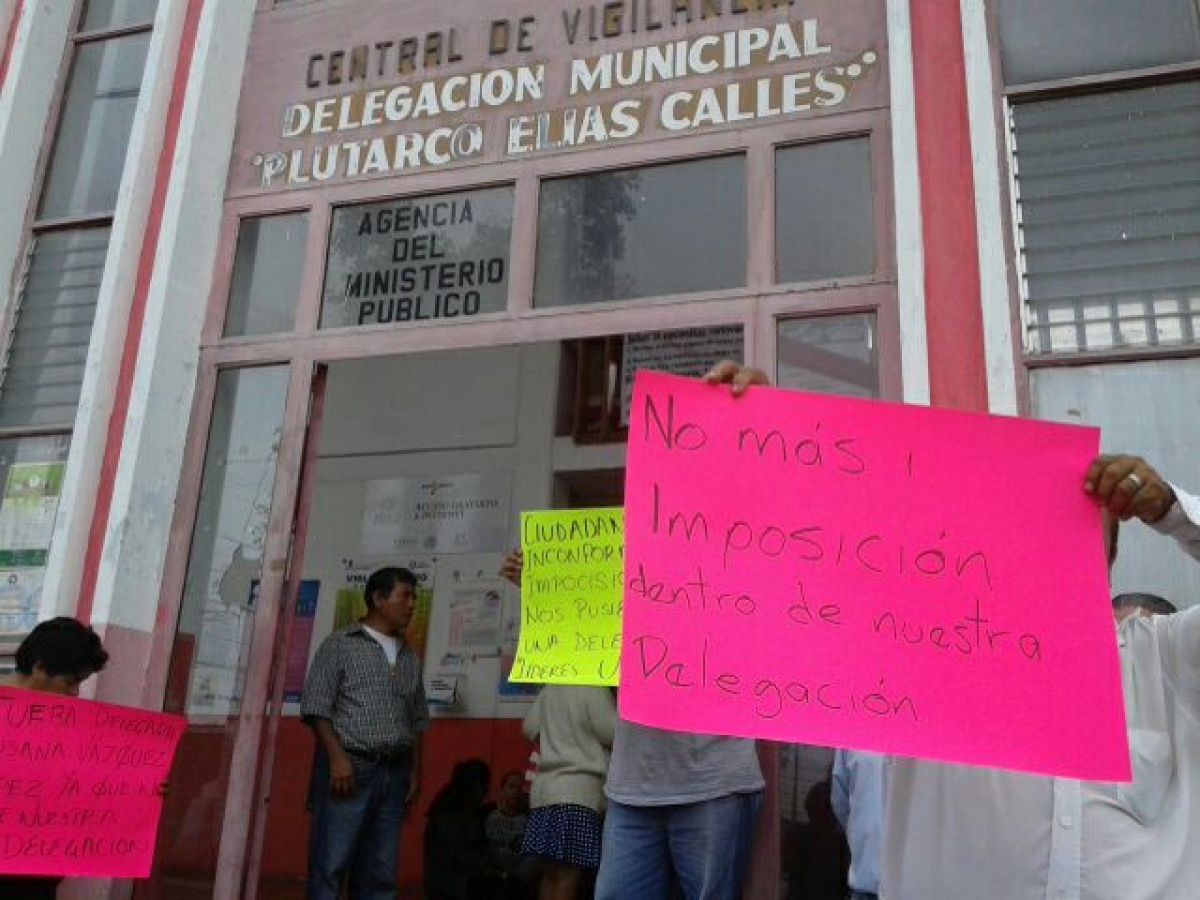 CENTRAL DE VIGILANCIA
DELEGACION MUNICIPAL
"PLUTARCO ELIAS CALLES"
AGENCIA
DEL
MINISTERIO
PUBLICO
No más
Imposición
dentro de nuestra
Delegación
CIUDADAN
INCONFOR
IMPOCISI
NOS PUSIE
UNA DELE
LIDERES
FUERA DELEGADA
SUSANA VAZQUEZ
PEZ YA QUE NO
DE NUESTRA
DELEGACION
ACCESO GRATUITO
A INTERNET